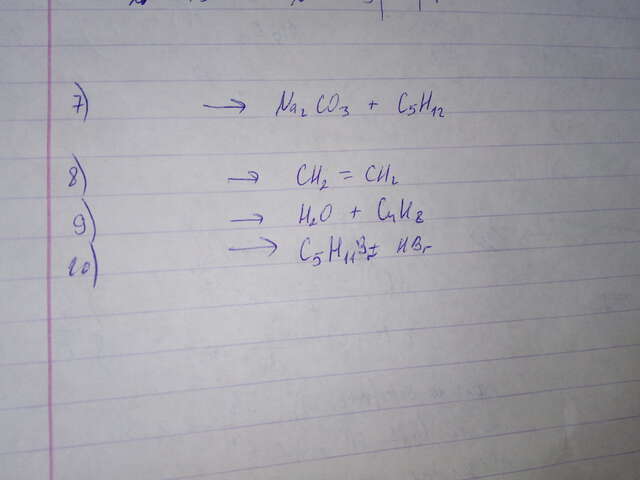 7) → Na₂CO₃ + C₅H₁₂
8) → CH₂ = CH₂
9) → H₂O + C₄H₈
10) → C₅H₁₁Br + HBr